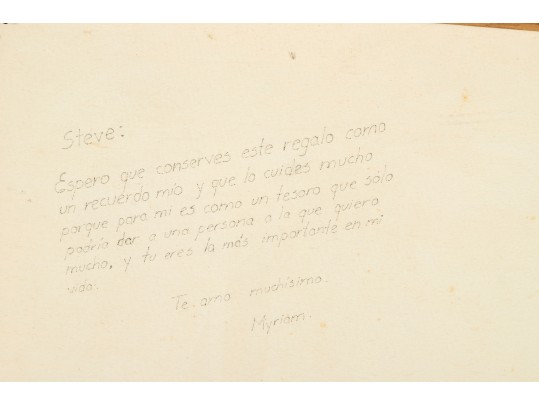 Steve:
Espero que conserves este regalo como
un recuerdo mío y que lo cuides mucho
porque para mi es como un tesoro que sólo
podría dar a una persona a la que quiera
mucho, y tu eres la más importante en mi
vida.
Te amo muchísimo.
Myriam.